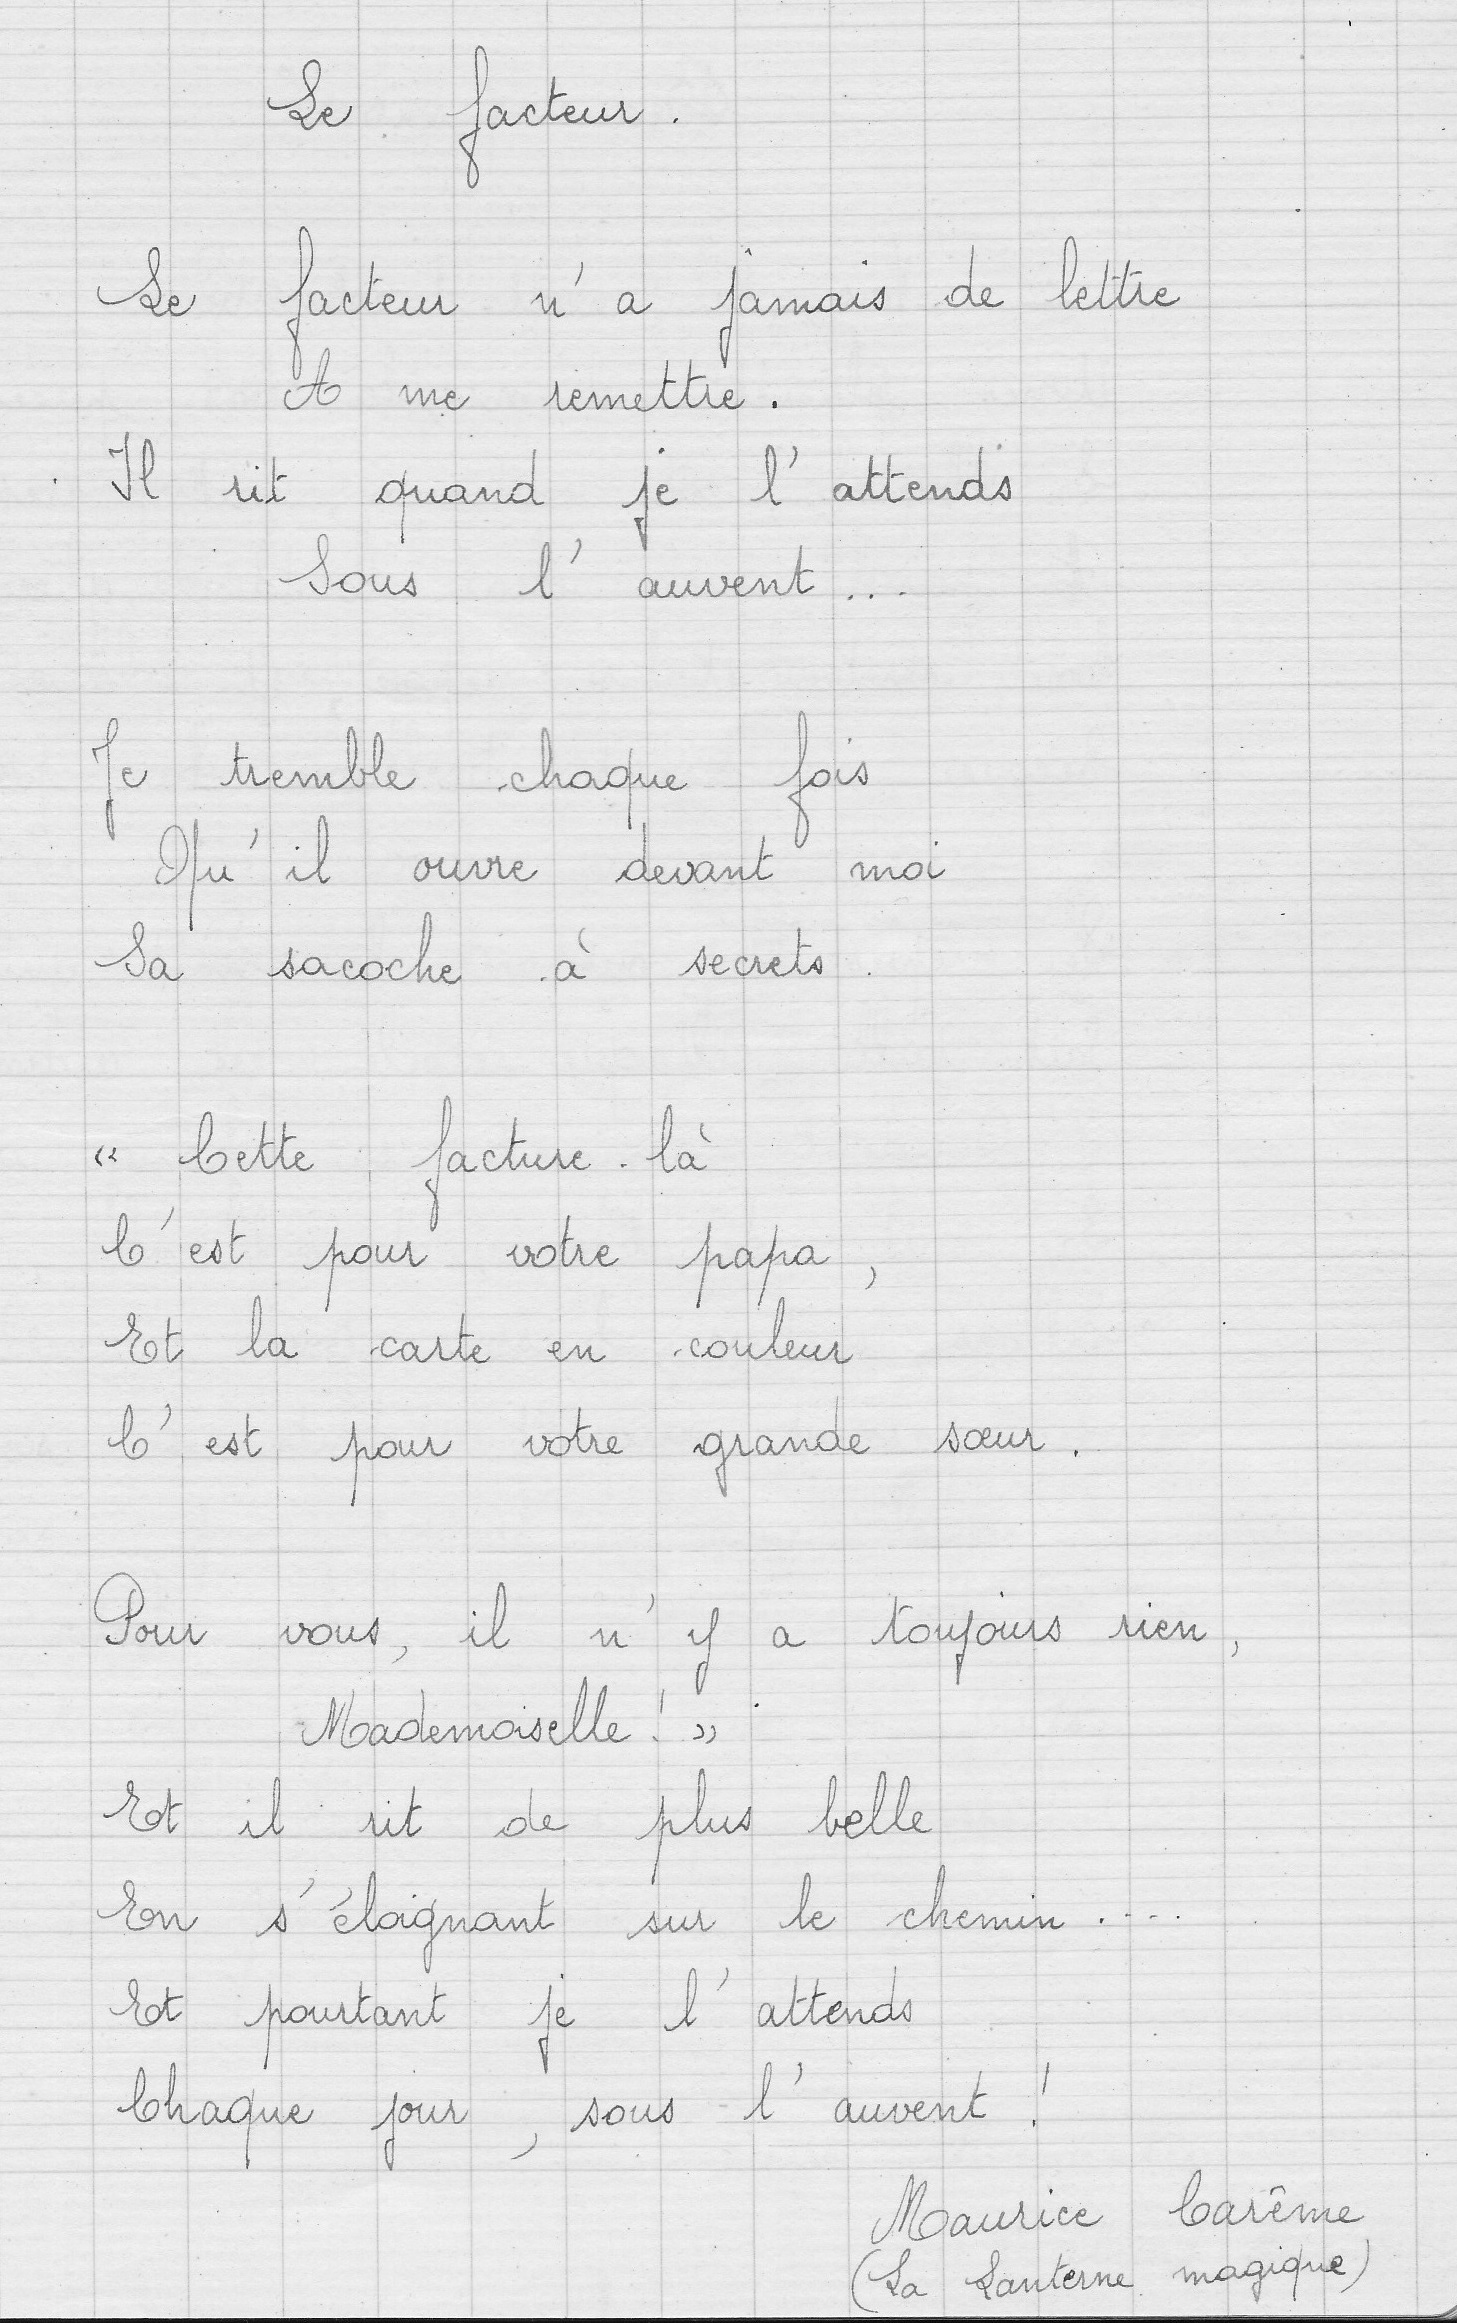 Le facteur.
Le facteur n'a jamais de lettre
A me remettre.
Il rit quand je l'attends
Sous l'auvent...
Je tremble chaque fois
Qu'il ouvre devant moi
Sa sacoche à secrets.
« Cette facture-là
C'est pour votre papa,
Et la carte en couleur
C'est pour votre grande sœur.
Pour vous, il n'y a toujours rien,
Mademoiselle ! »
Et il rit de plus belle
En s'éloignant sur le chemin....
Et pourtant je l'attends
Chaque jour, sous l'auvent !
Maurice Carême
(La Lanterne magique)